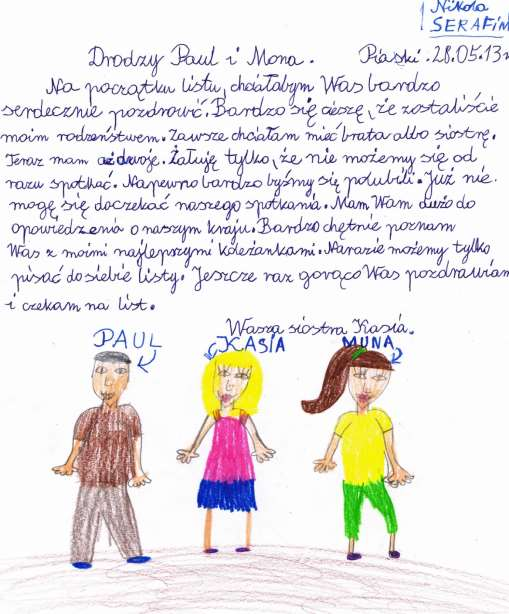 Nikola
SERAFIN
Drodzy Paul i Mona. Piaski. 28.05.13r
Na początku listu, chciałabym Was bardzo
serdecznie pozdrowić. Bardzo się cieszę, że zostaliście
moim rodzeństwem. Zawsze chciałam mieć brata albo siostrę.
Teraz mam aż dwoje. Żałuję tylko, że nie możemy się od
razu spotkać. Napewno bardzo byśmy się polubili. Już nie
mogę się doczekać naszego spotkania. Mam Wam dużo do
opowiedzenia o naszym kraju. Bardzo chętnie poznam
Was z moimi najlepszymi koleżankami. Narazie możemy tylko
pisać do siebie listy. Jeszcze raz gorąco Was pozdrawiam
i czekam na list.
Wasza siostra Kasia.
PAUL KASIA MUNA